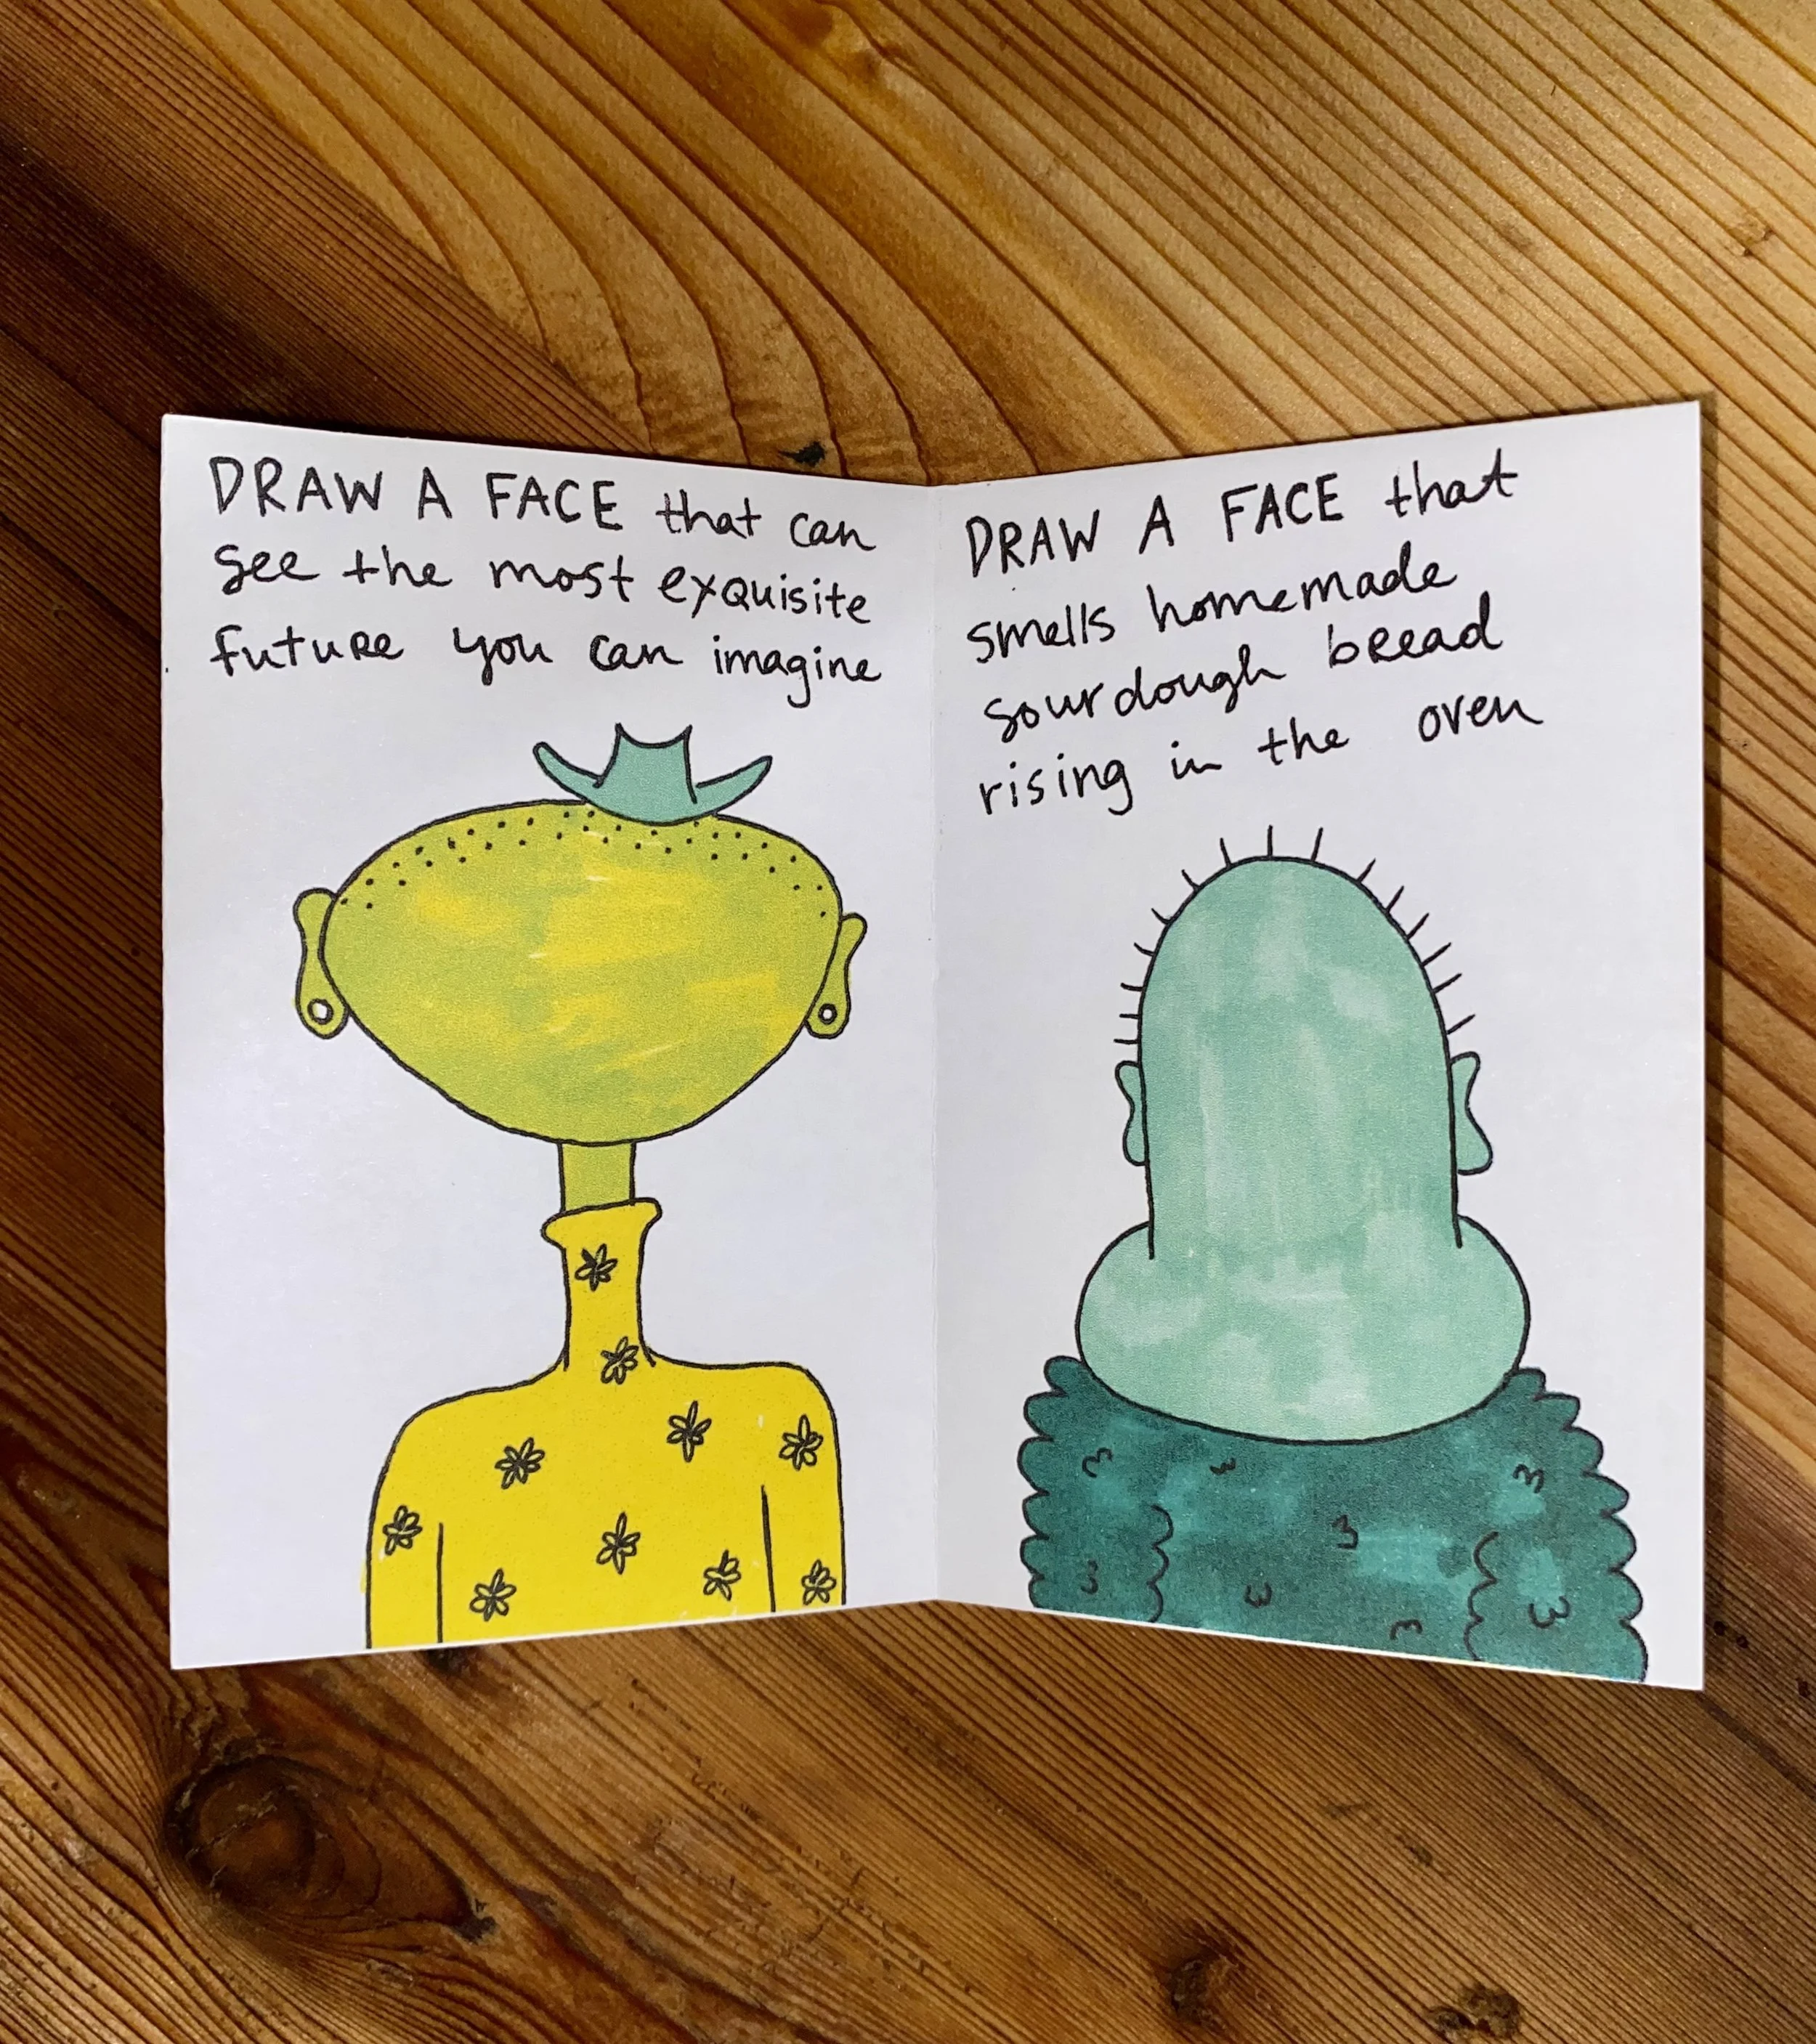 DRAW A FACE that can
see the most exquisite
future you can imagine
DRAW A FACE that
smells homemade
sourdough bread
rising in the oven